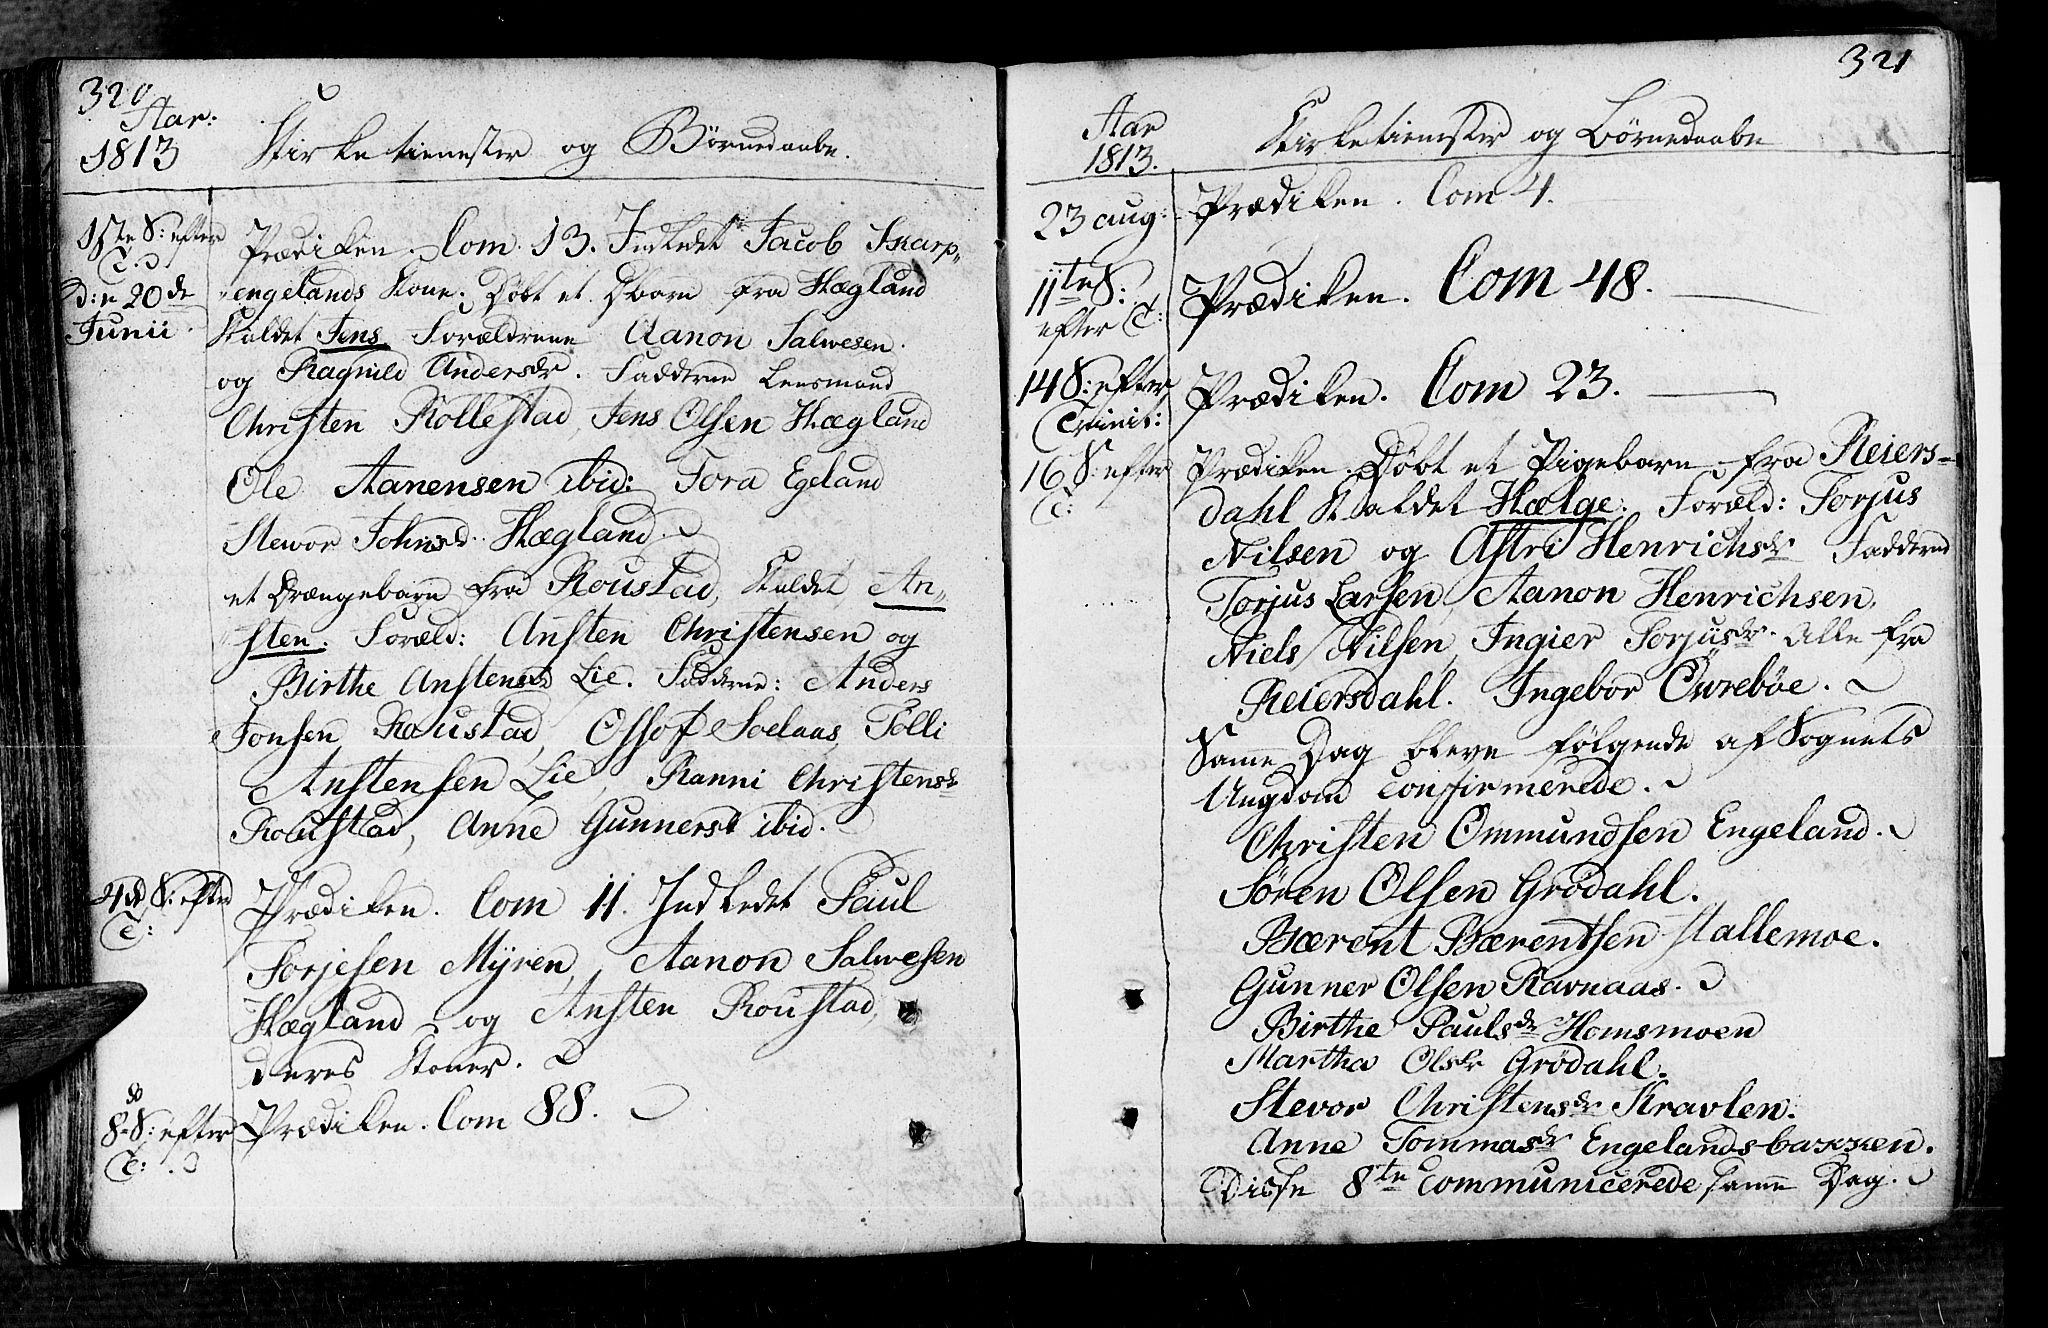 320
Aar:
1813
Kirketienester og Børnedaabe.
1ste S: efter
T:
d:n 20de
Junii.
Prædiken. Com. 13. Indledt Jacob Skarp„
„engelands Kone: Døbt et Dbarn fra Hægland
Kaldet Jens Forældrene Aanon Salwesen.
og Ragnild Andersdr. Fadderne Lensmand
Christen Rollestad, Jens Olsen Hægland
Ole Aanensen ibid: Tora Egeland
Stewor Johnsd. Hægland.
et Drængebarn fra Roustad, Kaldet An„
sten. Foræld: Ansten Christensen og
Birthe Anstensd Lie. Fadderne: Anders
Jonsen Roustad, Ossof Soelaas, Tolli
Anstensen Lie, Ranni Christensdr
Roustad, Anne Gunnersd ibid.
4de S: efter
T:
Prædiken. Com 11. Indledt Paul
Torjesen Mÿren, Aanon Salwesen
Hægland og Ansten Roustad,
deres Koner.
8de S: efter
T:
Prædiken. Com 88.
321
Aar
1813.
Kirketienester og Børnedaabe
23 aug:
Prædiken. Com 4.
11te S:
efter T:
Prædiken. Com 48.
14 S: efter
Trinit:
Prædiken. Com 23.
16 S: efter
T:
Prædiken. Døbt et Pigebarn, fra Reiers-
dahl Kaldet Hælge. Foræld: Torjus
Nilsen og Astri Henrichsdr Fadderne
Torjus Larsen, Aanon Henrichsen,
Niels Nilsen, Ingier Torjusdr. Alle fra
Reiersdahl. Ingebor Øwrebøe.
Samme Dag bleve følgende af Sognets
Ungdom confirmerede.
Christen Ommundsen Engeland.
Søren Olsen Grødahl.
Bærent Bærentsen Stallemoe.
Gunner Olsen Ravnaas.
Birthe Paulsdr Homsmoen
Martha Olsdr Grødahl.
Stevor Christensdr Kravlen.
Anne Tommasdr Engelandsbakken.
Disse 8te Communicerede samme Dag.